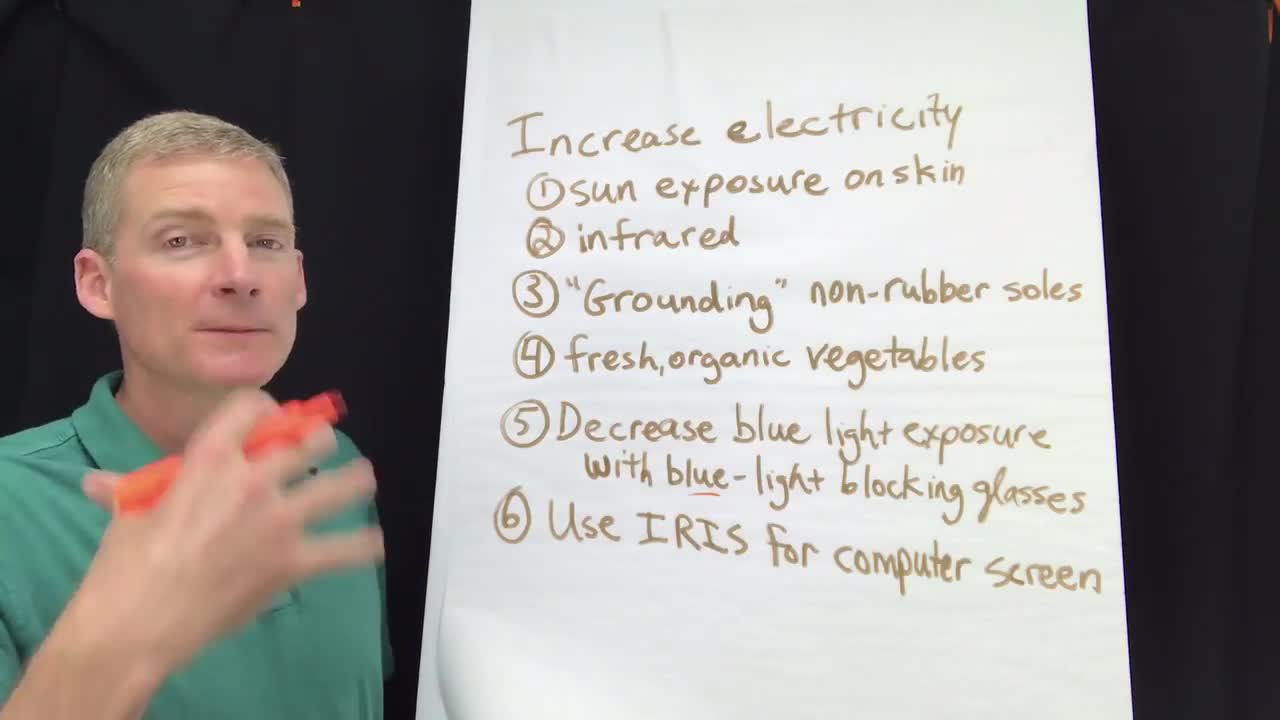 Increase electricity
① sun exposure on skin
② infrared
③ "Grounding" non-rubber soles
④ fresh, organic vegetables
⑤ Decrease blue light exposure
with blue-light blocking glasses
⑥ Use IRIS for computer screen